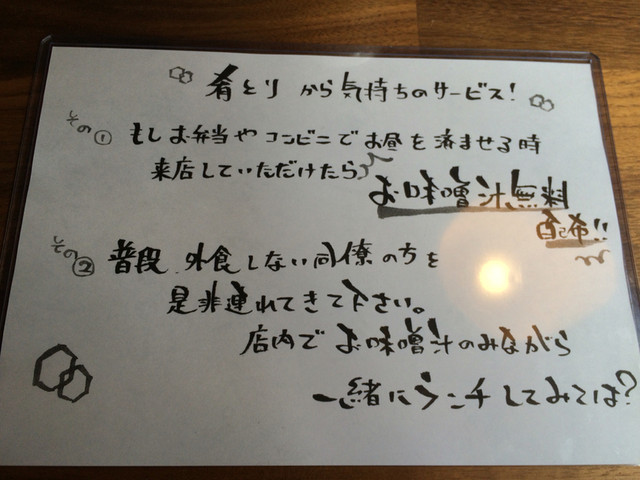 肴とり から気持ちのサービス!
その① もしお弁当やコンビニでお昼を済ませる時
来店していただけたら
お味噌汁無料
配布!!
その② 普段、外食しない同僚の方を
是非連れてきて下さい。
店内でお味噌汁のみながら
一緒にランチしてみては?